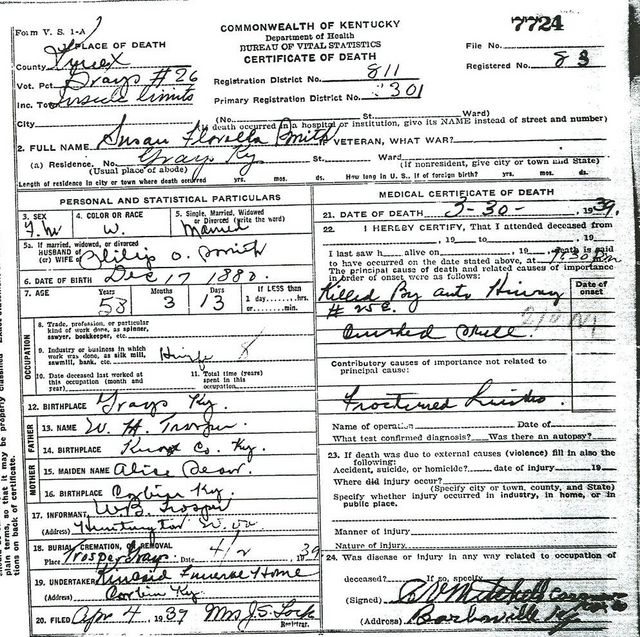 Form V. S. 1-A
COMMONWEALTH OF KENTUCKY
Department of Health
BUREAU OF VITAL STATISTICS
CERTIFICATE OF DEATH
7724
File No.
Registered No. 83
PLACE OF DEATH
County Knox
Vot. Pct. Grays #26
Inc. Town Inside limits
City
Registration District No. 811
Primary Registration District No. 301
(No. St. Ward)
(If death occurred in a hospital or institution, give its NAME instead of street and number)
2. FULL NAME Susan Smith VETERAN, WHAT WAR?
(a) Residence. No. Gray Ky St. Ward
(Usual place of abode) (If nonresident, give city or town and State)
Length of residence in city or town where death occurred yrs. mos. ds. How long in U. S., if of foreign birth? yrs. mos. ds.
PERSONAL AND STATISTICAL PARTICULARS
3. SEX
4. COLOR OR RACE W.
5. Single, Married, Widowed or Divorced (write the word) Married
5a. If married, widowed, or divorced
HUSBAND of
(or) WIFE of Philip O. Smith
6. DATE OF BIRTH Dec 17 1880
7. AGE Years 58 Months 3 Days 13 If LESS than 1 day hrs. or min.
OCCUPATION
8. Trade, profession, or particular kind of work done, as spinner, sawyer, bookkeeper, etc.
9. Industry or business in which work was done, as silk mill, sawmill, bank, etc.
10. Date deceased last worked at this occupation (month and year)
11. Total time (years) spent in this occupation
12. BIRTHPLACE Grays Ky.
FATHER
13. NAME W. H. Trosper
14. BIRTHPLACE Knox Co. Ky.
MOTHER
15. MAIDEN NAME Alice
16. BIRTHPLACE Corbin Ky.
17. INFORMANT W B Trosper
(Address) Huntington W. Va
18. BURIAL, CREMATION, REMOVAL
Place Trosper Grays Date 4/2 1939
19. UNDERTAKER Kincaid Funeral Home
(Address) Corbin Ky.
20. FILED Apr 4 1939 Mrs J.S. Lock
Registrar.
MEDICAL CERTIFICATE OF DEATH
21. DATE OF DEATH 3-30- 1939
22. I HEREBY CERTIFY, That I attended deceased from
19 to 19
I last saw h alive on 19 death is said
to have occurred on the date stated above, at 9:30 Pm
The principal cause of death and related causes of importance
in order of onset were as follows:
Date of onset
Killed By auto Hiway
# 25 E.
Crushed Skull
Contributory causes of importance not related to
principal cause:
Fractured
Name of operation Date of
What test confirmed diagnosis? Was there an autopsy?
23. If death was due to external causes (violence) fill in also the
following:
Accident, suicide, or homicide? date of injury 19
Where did injury occur?
(Specify city or town, county, and State)
Specify whether injury occurred in industry, in home, or in
public place.
Manner of injury
Nature of injury
24. Was disease or injury in any way related to occupation of
deceased? If so, specify
(Signed) Mitchell Coroner
(Address) Barbourville Ky.